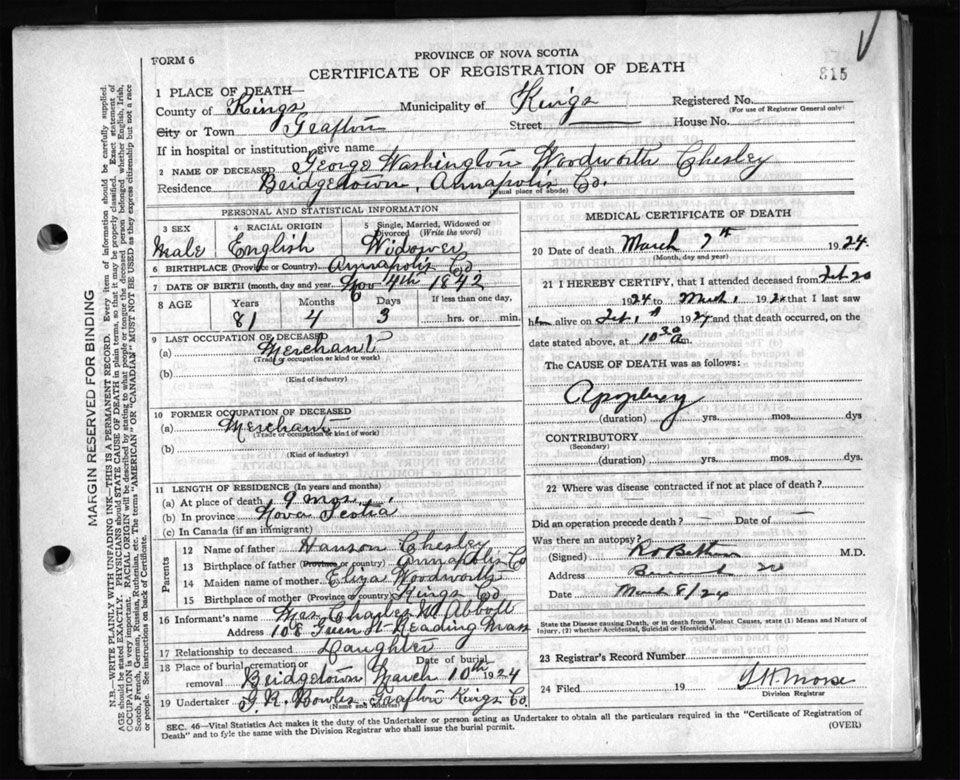 FORM 6
PROVINCE OF NOVA SCOTIA
CERTIFICATE OF REGISTRATION OF DEATH
815
1 PLACE OF DEATH—
County of Kings Municipality of Kings Registered No.
(For use of Registrar General only)
City or Town Grafton Street House No.
If in hospital or institution, give name
2 NAME OF DECEASED George Washington Woodworth Chesley
Residence Bridgetown, Annapolis Co.
(Usual place of abode)
PERSONAL AND STATISTICAL INFORMATION
3 SEX 4 RACIAL ORIGIN 5 Single, Married, Widowed or Divorced (Write the word)
Male English Widower
6 BIRTHPLACE (Province or Country) Annapolis Co
7 DATE OF BIRTH (month, day and year) Nov 4th 1842
8 AGE Years Months Days If less than one day,
81 4 3 hrs. or min.
9 LAST OCCUPATION OF DECEASED
(a) Merchant
(Trade or occupation or kind or work)
(b)
(Kind of industry)
10 FORMER OCCUPATION OF DECEASED
(a) Merchant
(Trade or occupation or kind of work)
(b)
(Kind of industry)
11 LENGTH OF RESIDENCE (In years and months)
(a) At place of death 9 mos
(b) In province Nova Scotia
(c) In Canada (if an immigrant)
Parents
12 Name of father Hanson Chesley
13 Birthplace of father (Province or country) Annapolis Co
14 Maiden name of mother Eliza Woodworth
15 Birthplace of mother (Province or country) Kings Co
16 Informant's name Mrs. Charles W. Abbott
Address 108 St Reading Mass
17 Relationship to deceased Daughter
18 Place of burial, cremation or removal Bridgetown Date of burial March 10th 1924
19 Undertaker G. R. Bowles Grafton Kings Co.
(Name and Address)
MEDICAL CERTIFICATE OF DEATH
20 Date of death March 7th 1924
(Month, day and year)
21 I HEREBY CERTIFY, that I attended deceased from Feb 20
1924 to March 1 1924 that I last saw
him alive on Feb 1th 1924 and that death occurred, on
date stated above, at 10 30 a m.
The CAUSE OF DEATH was as follows:
Apoplexy
(duration) yrs. mos. dys
CONTRIBUTORY
(Secondary)
(duration) yrs. mos. dys.
22 Where was disease contracted if not at place of death?
Did an operation precede death? — Date of —
Was there an autopsy?
(Signed) M.D.
Address
Date March 8/24
State the Disease causing Death, or in death from Violent Causes, state (1) Means and Nature of Injury, (2) whether Accidental, Suicidal or Homicidal.
23 Registrar's Record Number
24 Filed 19 Morse
Division Registrar
SEC. 46—Vital Statistics Act makes it the duty of the Undertaker or person acting as Undertaker to obtain all the particulars required in the "Certificate of Registration of
Death" and to fyle the same with the Division Registrar who shall issue the burial permit.
(OVER)
MARGIN RESERVED FOR BINDING
N.B.—WRITE PLAINLY WITH UNFADING INK—THIS IS A PERMANENT RECORD. Every item of information should be carefully supplied.
AGE should be stated EXACTLY. PHYSICIANS should STATE CAUSE OF DEATH in plain terms, so that it may be properly classified. Exact statement of
OCCUPATION is very important. RACIAL ORIGIN will be described by stating to what people or tongue the deceased person belonged whether English, Irish,
Scotch, French, German, Russian, Ruthenian, etc. The terms "AMERICAN" OR "CANADIAN" MUST NOT BE USED as they express citizenship but not a race
or people. See instructions on back of Certificate.